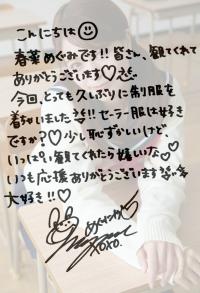 こんにちは☺
春菜めぐみです!! 皆さん、観てくれて
ありがとうございます♡
今回、とっても久しぶりに制服を
着ちゃいました!! セーラー服は好き
ですか?♡ 少し恥ずかしいけど、
いっぱい観てくれたら嬉しいな♡
いつも応援ありがとうございます
大好き!!♡
めぐみ
XOXO.